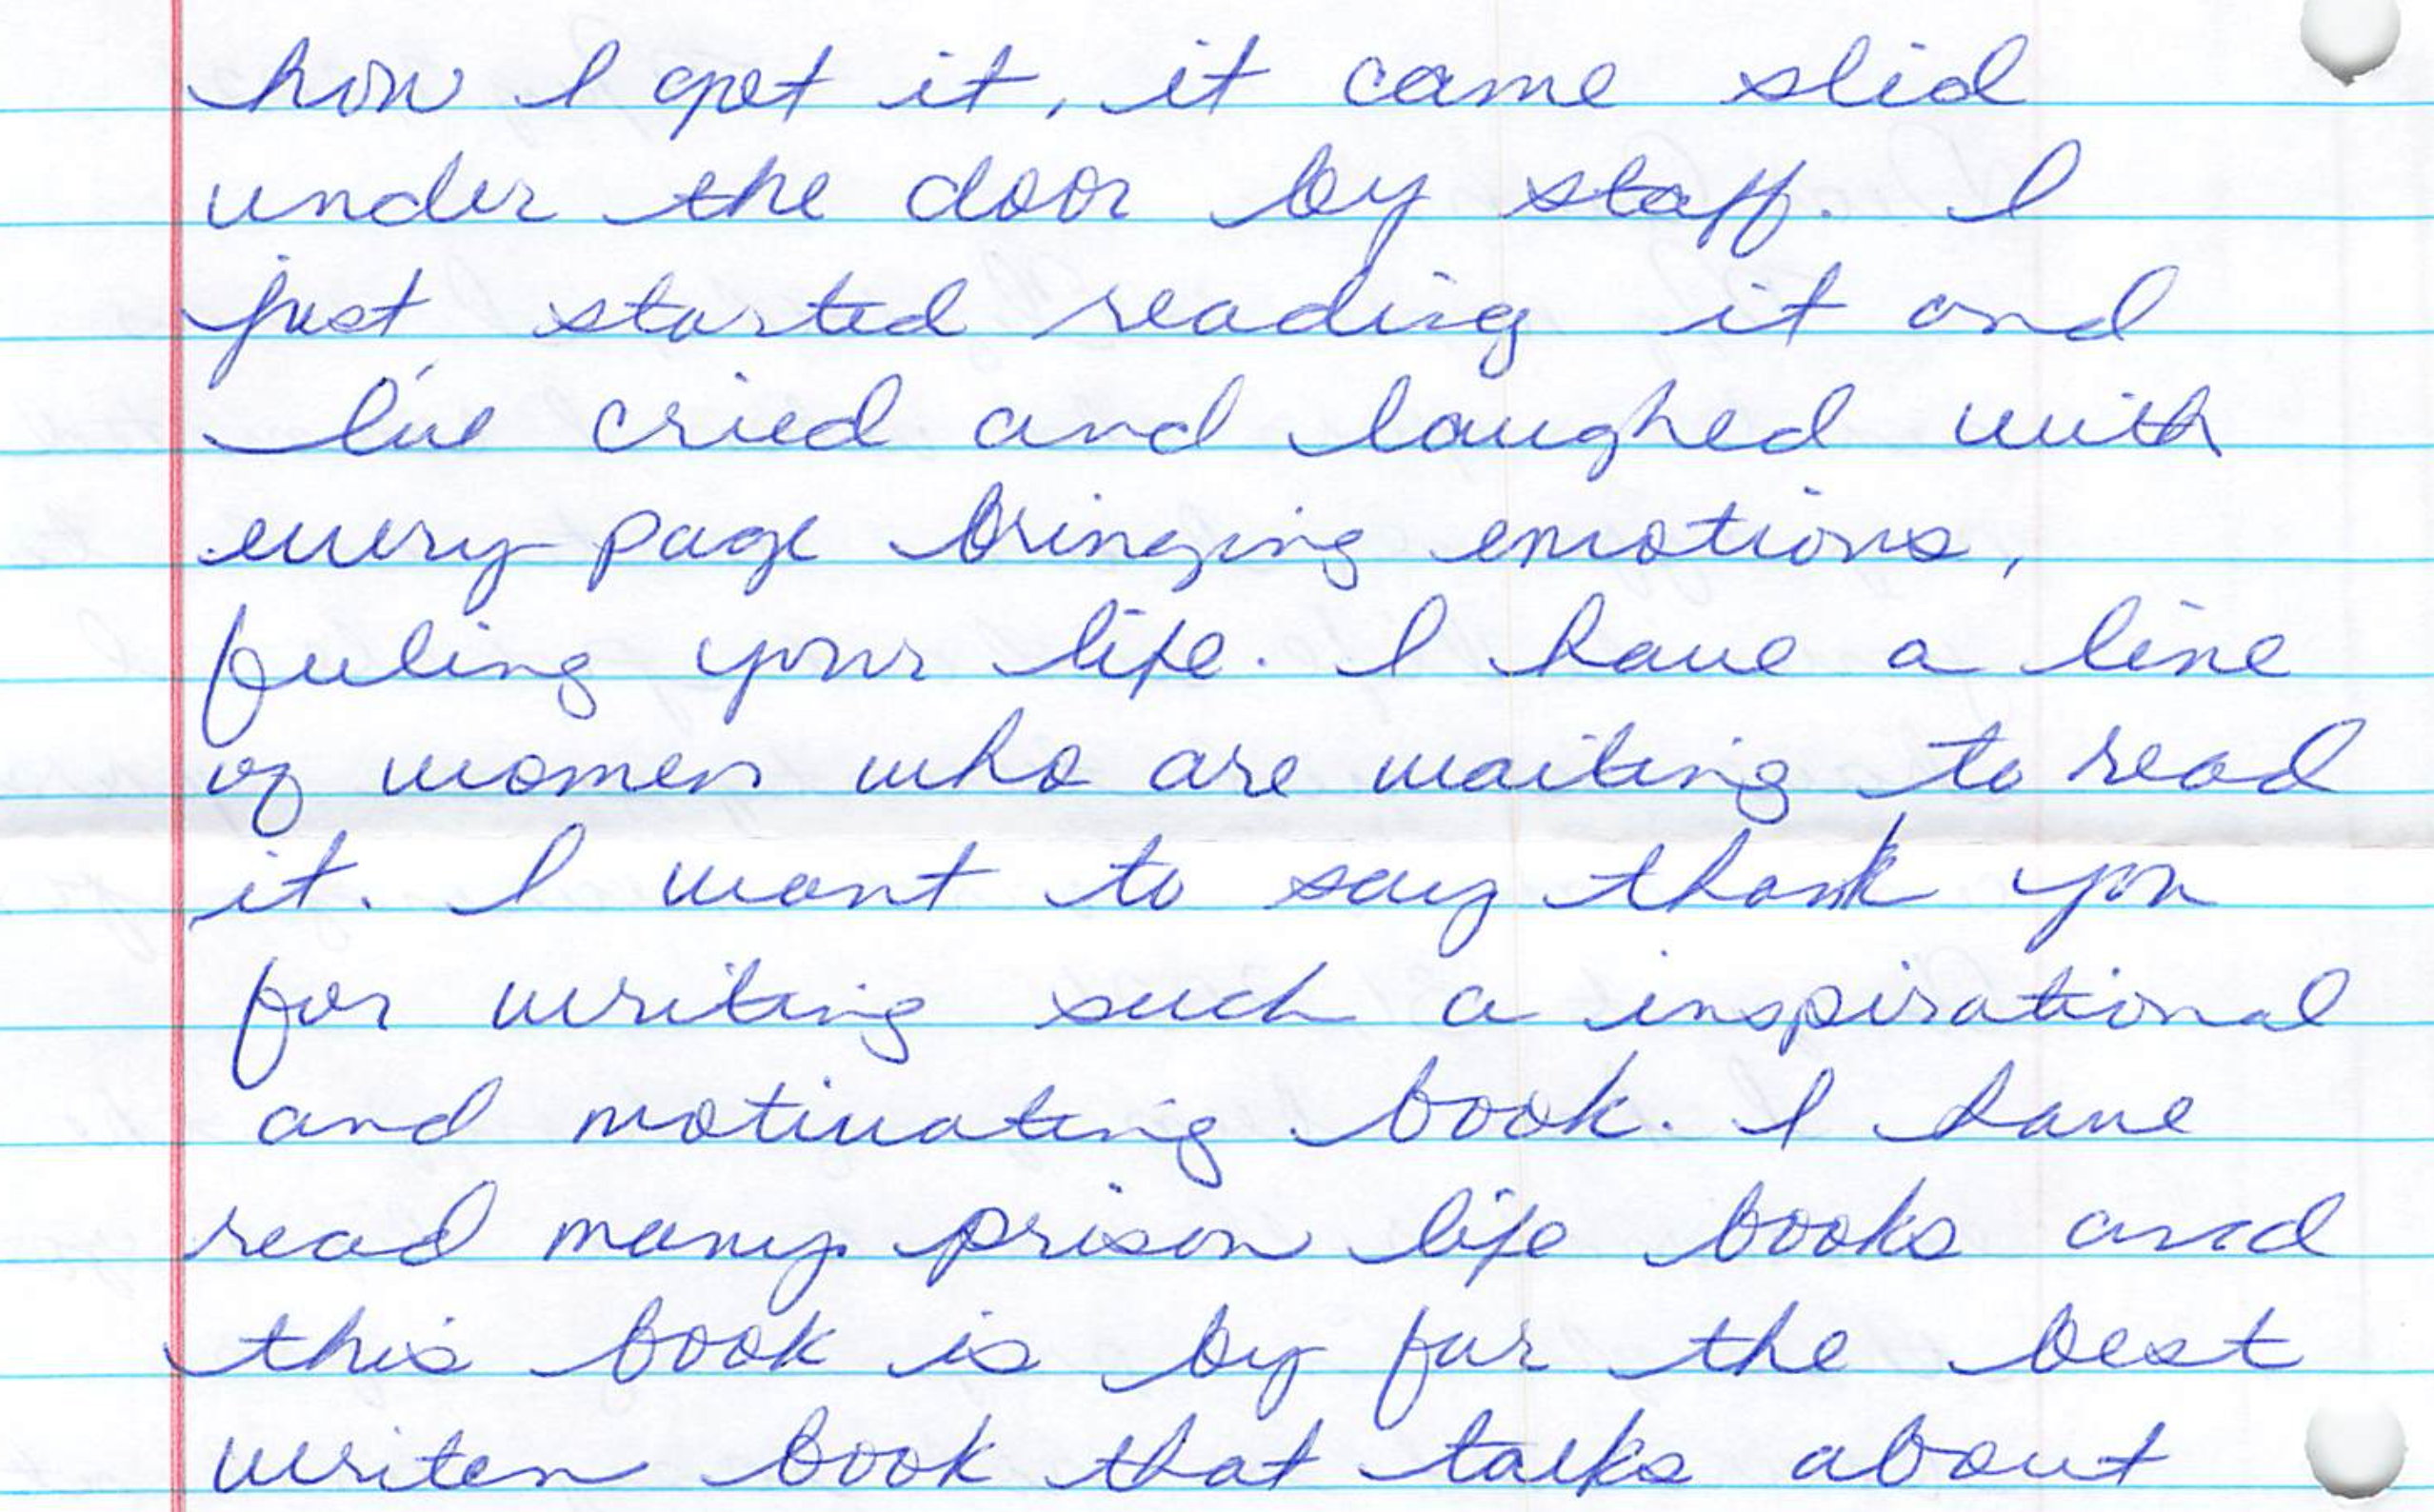 how I get it, it came slid
under the door by staff. I
just started reading it and
I've cried and laughed with
every page bringing emotions,
feeling your life. I have a line
of women who are waiting to read
it. I want to say thank you
for writing such a inspirational
and motivating book. I have
read many prison life books and
this book is by far the best
writen book that talks about